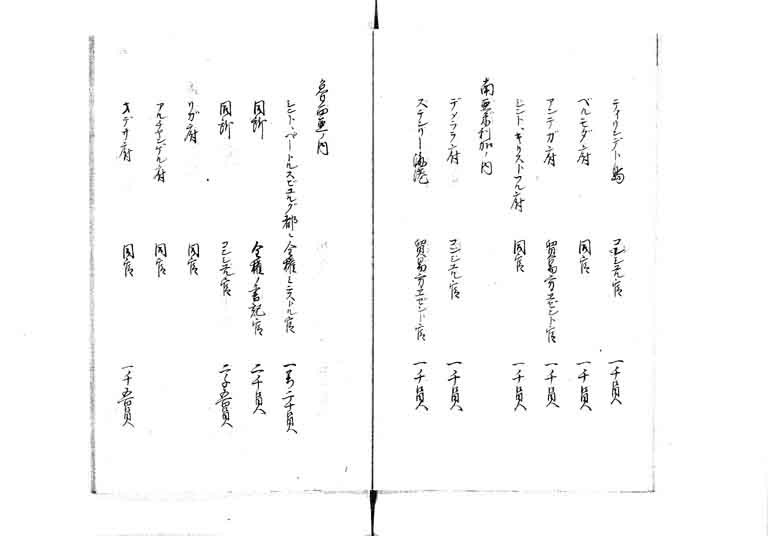 ティリンデート島 コンシユル官 一千員
ベルモダ府 同官 一千員
アンテガ府 貿易方エゼント官 一千員
シント、キリストフル府 同官 一千員
南亜米利加ノ内
デメララ府 コンシユル官 一千員
ステンリー海港 貿易方エゼント官 一千員
魯西亜ノ内
シント、ペートルスビユルグ都 全権ミニストル官 一万二千員
同所 全権ノ書記官 二千員
同所 コンシユル官 二千五百員
リガ府 同官
アルチヤンゲル府 同官
オデサ府 同官 一千五百員